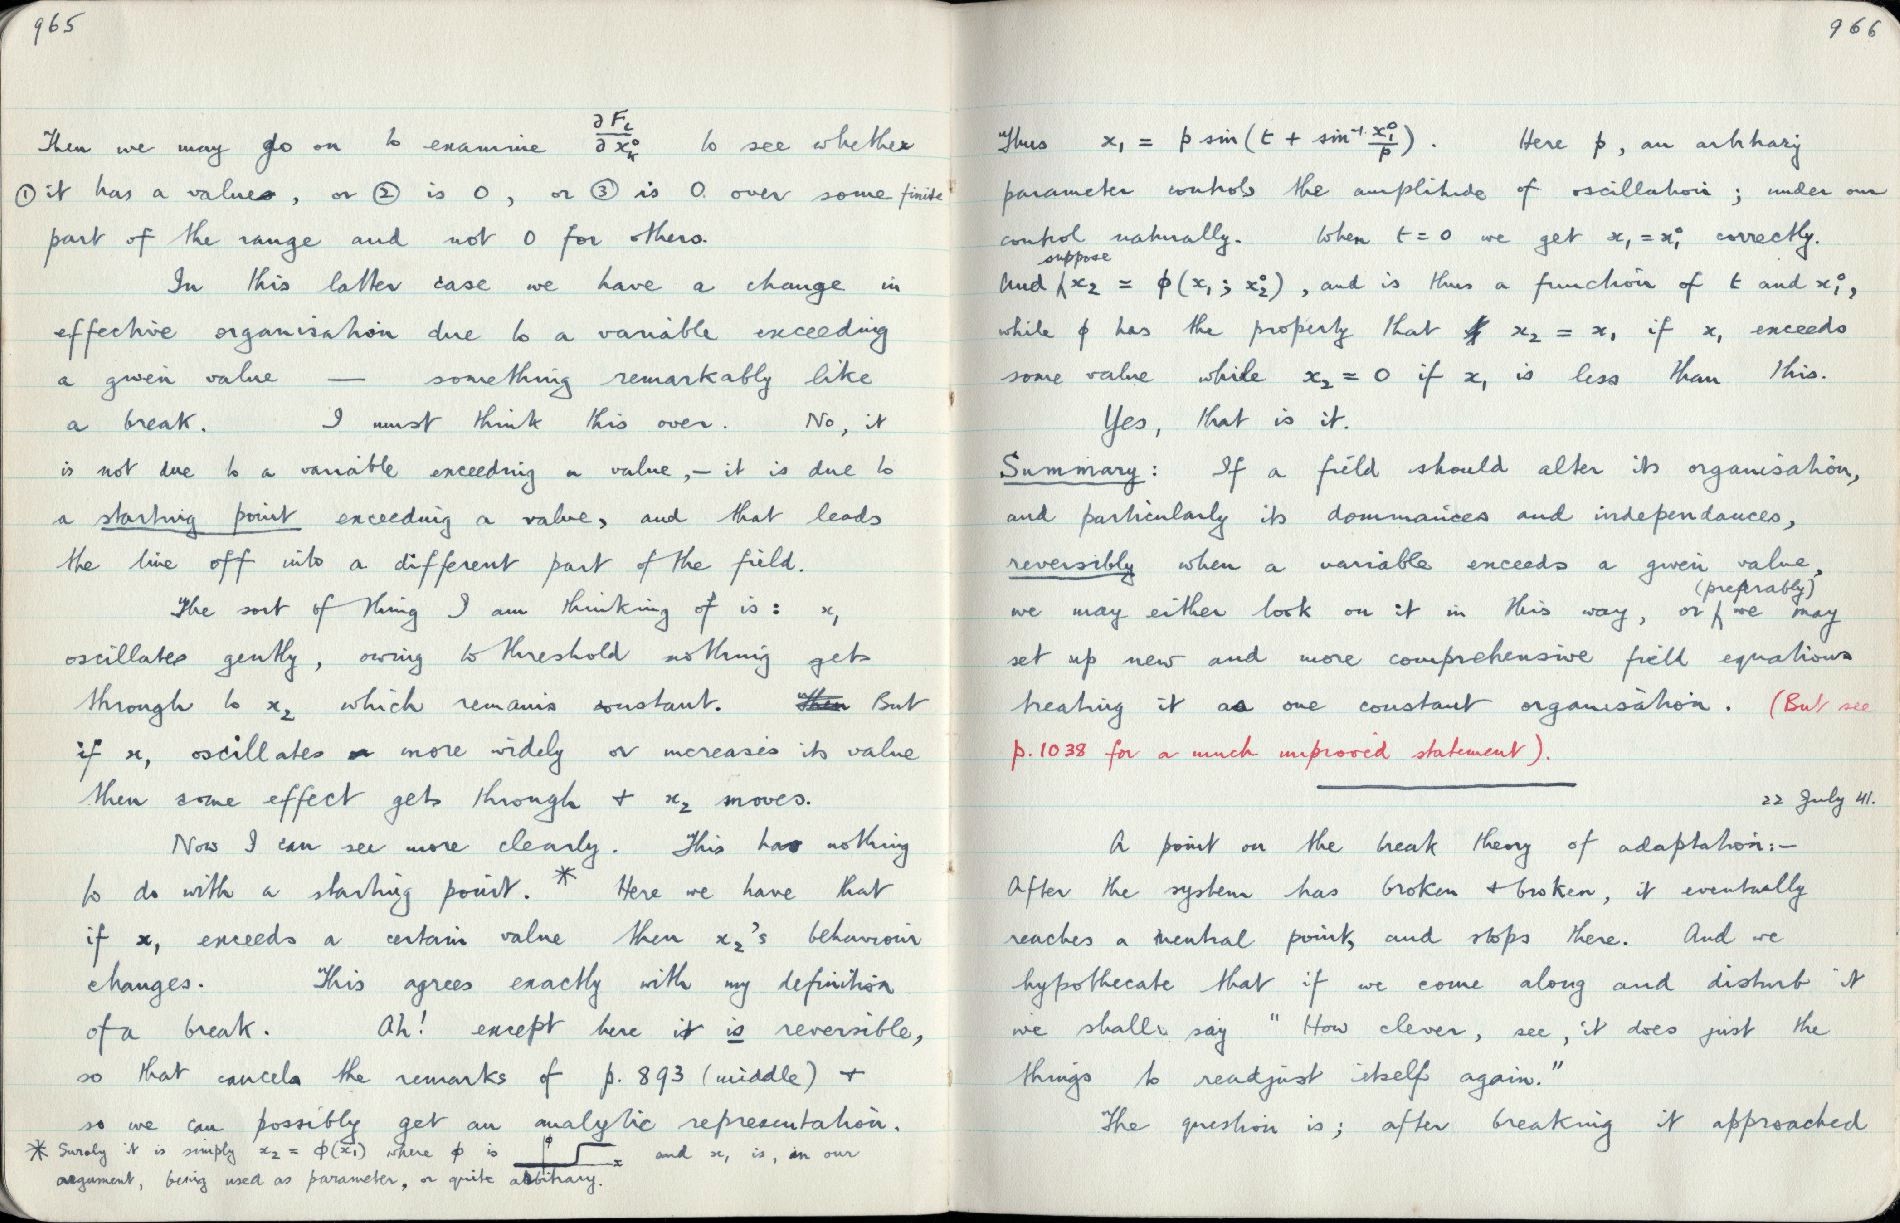 965
Then we may go on to examine ∂Fi/∂x°k to see whether
① it has a value, or ② is 0, or ③ is 0 over some finite
part of the range and not 0 for others.
In this latter case we have a change in
effective organisation due to a variable exceeding
a given value — something remarkably like
a break. I must think this over. No, it
is not due to a variable exceeding a value, – it is due to
a starting point exceeding a value, and that leads
the line off into a different part of the field.
The sort of thing I am thinking of is: x₁
oscillates gently, owing to threshold nothing gets
through to x₂ which remains constant. Then But
if x₁ oscillates more widely or increases its value
then some effect gets through + x₂ moves.
Now I can see more clearly. This has nothing
to do with a starting point. * Here we have that
if x₁ exceeds a certain value then x₂'s behaviour
changes. This agrees exactly with my definition
of a break. Ah! except here it is reversible,
so that cancels the remarks of p. 893 (middle) +
so we can possibly get an analytic representation.
* Surely it is simply x₂ = ϕ(x₁) where ϕ is ϕ x and x₁ is, in our
argument, being used as parameter, or quite arbitrary.
966
Thus x₁ = p sin(t + sin⁻¹ x₁°/p). Here p, an arbitrary
parameter controls the amplitude of oscillation; under our
control naturally. When t=0 we get x₁=x₁° correctly.
suppose
And x₂ = ϕ(x₁; x₂°), and is thus a function of t and x₁°,
while ϕ has the property that x₂ = x₁ if x₁ exceeds
some value while x₂ = 0 if x₁ is less than this.
Yes, that is it.
Summary: If a field should alter its organisation,
and particularly its dominances and independances,
reversibly when a variable exceeds a given value,
(preferably)
we may either look on it in this way, or we may
set up new and more comprehensive field equations
treating it as one constant organisation. (But see
p. 1038 for a much improved statement).
22 July 41.
A point on the break theory of adaptation:–
After the system has broken + broken, it eventually
reaches a neutral point, and stops there. And we
hypothecate that if we come along and disturb it
we shall say "How clever, see, it does just the
things to readjust itself again."
The question is; after breaking it approached